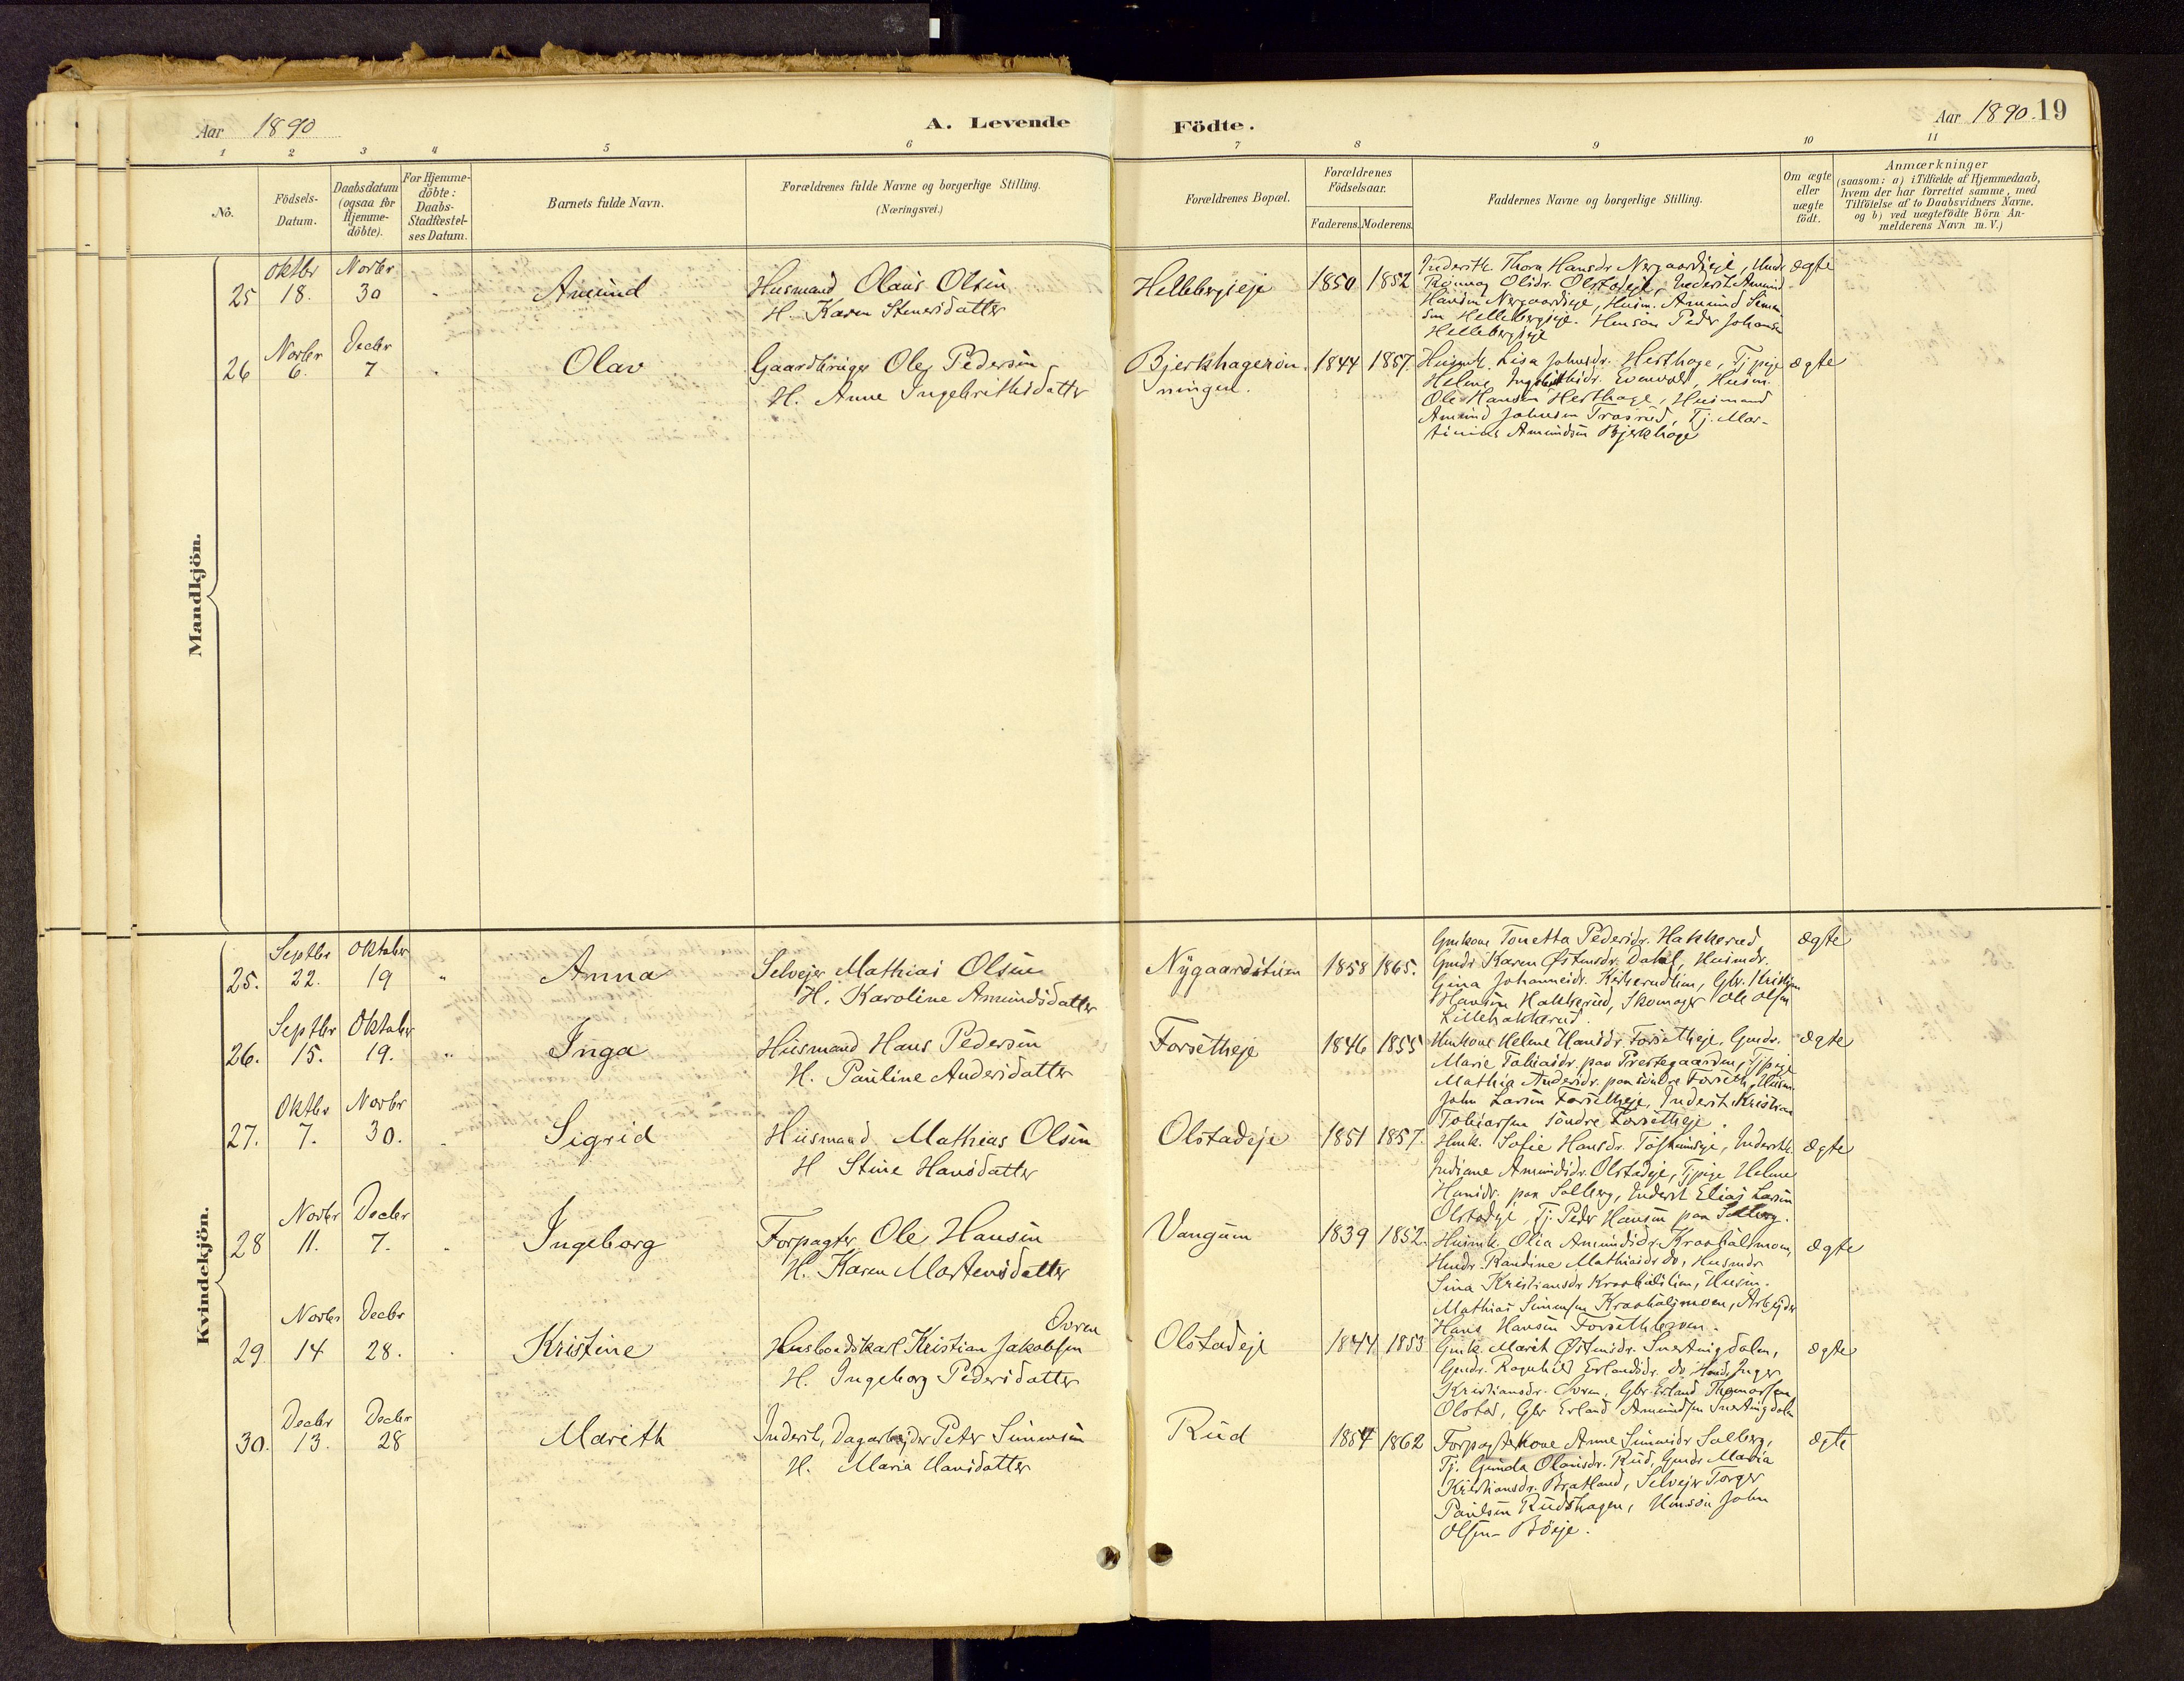 Aar 1890
A. Levende
Födte.
Aar 1890. 19
1 2 3 4 5 6 7 8 9 10 11
No.
Födsels-Datum.
Daabsdatum (ogsaa for Hjemme-döbte).
For Hjemme-döbte: Daabs-Stadfæstel-ses Datum.
Barnets fulde Navn.
Forældrenes fulde Navne og borgerlige Stilling.
(Næringsvei.)
Forældrenes Bopæl.
Forældrenes Födselsaar.
Faderens. Moderens.
Faddernes Navne og borgerlige Stilling.
Om ægte eller uægte födt.
Anmærkninger
(saasom: a) i Tilfælde af Hjemmedaab,
hvem der har forrettet samme, med
Tilföielse af to Daabsvidners Navne.
og b) ved uægtefödte Börn An-
melderens Navn m. V.)
Mandkjön.
25 Oktbr 18. Novbr 30 " Amund
Husmand Olaus Olsen
H. Karen Stenersdatter
Hellebergseje 1850 1852
Inderstk. Thora Hansdr Nergaardseje,
Rønnaug Olsdr. Olstadeje, Inderst Amund
Hansen Nergaardseje, Husm. Amund
Hellebergseje. Peder Johansen
Hellebergseje
ægte
26 Novbr 6. Decbr 7 " Olav
Gaardbruger Ole Pedersen
H. Anne Ingebrithsdatter
Bjerkhagerøn-
ningen. 1844 1857.
Husmk. Lisa Johnsdr. Hesthage, Tjpige
Helene Ingebrithsdr. Evenvold, Husm.
Ole Hansen Hesthage, Husmand
Amund Johnsen Trasrud, Tj. Mar-
tinius Amundsen Bjerkhage
ægte
Kvindekjön.
25. Septbr 22. Oktober 19 " Anna
Selvejer Mathias Olsen
H. Karoline Amundsdatter
Nygaardstuen 1858 1865.
Gmkone Tonetta Pedersdr. Hakkerud,
Gmdr Karen Østensdr. Dahl, Husmdr.
Gina Johannesdr. Gbr. Kristian
Hansen Hakkerud, Skomager Ole Olsen
Lillehakkerud.
ægte
26. Septbr 15. Oktober 19. " Inga
Husmand Hans Pedersen
H. Pauline Andersdatter
Forsetheje 1846 1855
Hmkone Helene Hansdr. Forsetheje, Gmdr.
Marie Tobiasdr. paa Prestegaarden, Tjpige
Mathia Andersdr. paa söndre Forseth, Husm.
John Larsen Forsetheje, Inderst Kristian
Tobiassen söndre Forsetheje.
ægte
27. Oktbr 7. Novbr 30. " Sigrid
Husmand Mathias Olsen
H Stine Hansdatter
Olstadeje 1851 1857.
Hmk. Sofie Hansdr. Inderstk.
Indiane Amundsdr. Olstadeje, Tjpige Helene
Hansdr. paa Solberg, Inderst Elias Larsen
Olstadeje, Tj. Peder Hansen paa Solberg.
ægte
28 Novbr 11. Decbr 7. " Ingeborg
Forpagter Ole Hansen
H. Karen Mortensdatter
Vangum 1839 1852.
Husmk. Olea Amundsdr. Kraabölsmoen,
Hmdr. Randine Mathiasdr do, Husmdr
Sina Kristiansdr Kraabölslien, Husm.
Mathias Simensen Kraabölsmoen, Arbejder
Hans Hansen
ægte
29. Novbr 14 Decbr 28. " Kristine
Husbondskarl Kristian Jakobsen Ovren
H. Ingeborg Pedersdatter
Olstadeje 1844 1853
Gmk. Marit Østensdr. Svertingdalen,
Gmdr. Ragnhild Erlandsdr. do Inger
Kristiansdr. Ovren, Gbr Erland Thomassen
Olstad, Gbr Erland Amundsen Svertingdalen
ægte
30. Decbr 13. Decbr 28 Marith
Inderst, Dagarbejder Peter Simensen
H. Maria Hansdatter
Rud 1857 1862
Forpagterkone Anne Simensdr Solberg,
Tj. Gunda Olausdr. Rud, Gmdr Maria
Kristiansdr. Bratland, Selvejer Torger
Paulsen Rudshagen, Hmsön John
Olsen Böeje.
ægte